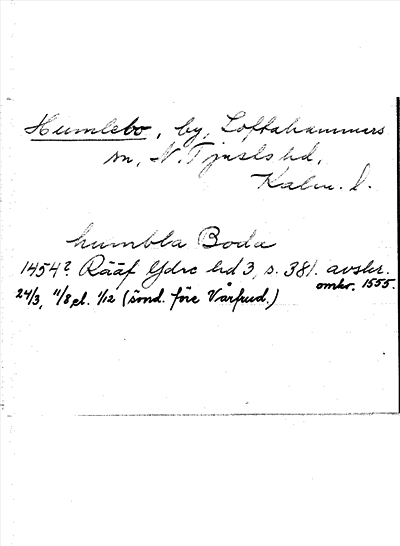 Humlebo, by, Loftahammars
sn, N. Tjusts hd,
Kalm. l.
humbla Boda
1454? Rääf Ydre hd 3, s. 381. avskr.
omkr. 1555.
24/3, 11/8 el. 1/12 (sönd. före Vårfrud.)